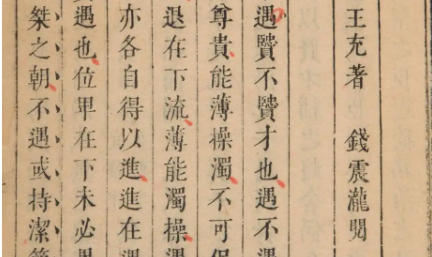 王充著 錢震瀧閲
遇贒不贒才也遇不遇
尊貴能薄操濁不可保
退在下流薄能濁操遇
亦各自得以進進在遇
遇也位卑在下未必愚
桀之朝不遇或持潔